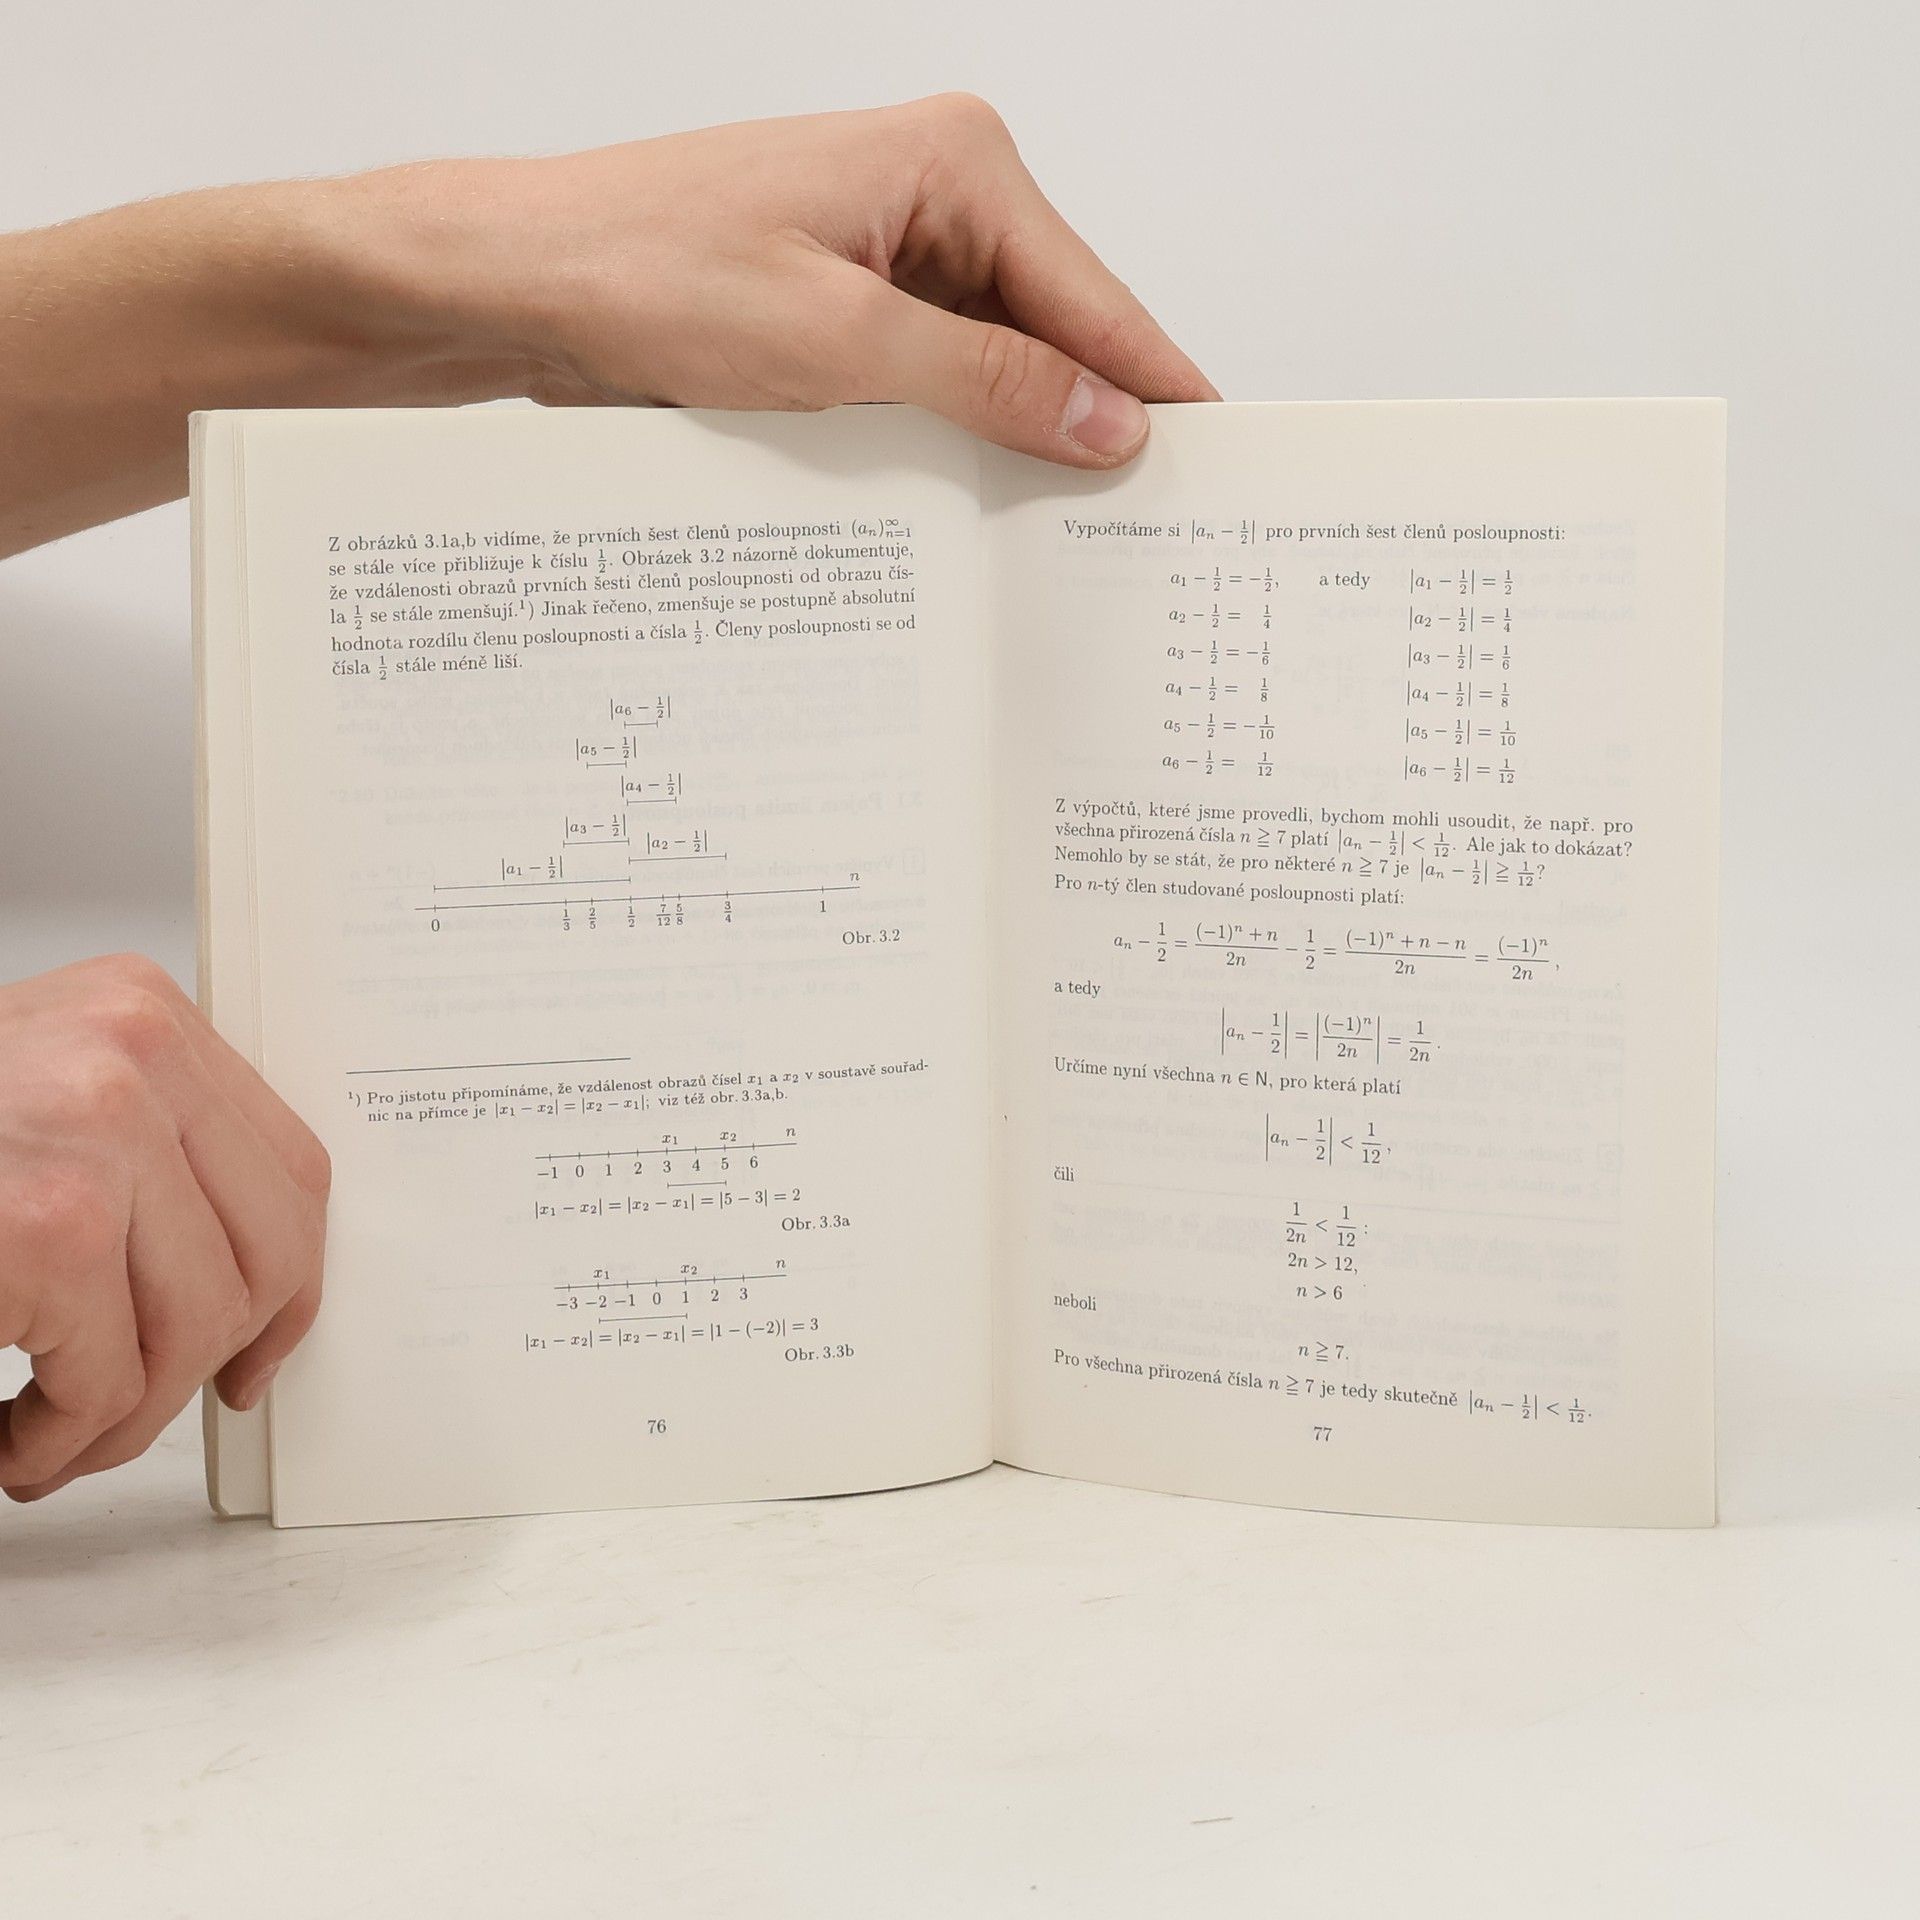 Z obrázků 3.1a,b vidíme, že prvních šest členů posloupnosti (aₙ)ₙ₌₁^∞
se stále více přibližuje k číslu 1/2. Obrázek 3.2 názorně dokumentuje,
že vzdálenosti obrazů prvních šesti členů posloupnosti od obrazu čís-
la 1/2 se stále zmenšují.¹) Jinak řečeno, zmenšuje se postupně absolutní
hodnota rozdílu členu posloupnosti a čísla 1/2. Členy posloupnosti se od
čísla 1/2 stále méně liší.
|a₆ − 1/2|
|a₅ − 1/2|
|a₄ − 1/2|
|a₃ − 1/2|
|a₂ − 1/2|
|a₁ − 1/2|
n
0 1/3 2/5 1/2 7/12 5/8 3/4 1
Obr. 3.2
¹) Pro jistotu připomínáme, že vzdálenost obrazů čísel x₁ a x₂ v soustavě souřad-
nic na přímce je |x₁ − x₂| = |x₂ − x₁|; viz též obr. 3.3a,b.
x₁ x₂ n
−1 0 1 2 3 4 5 6
|x₁ − x₂| = |x₂ − x₁| = |5 − 3| = 2
Obr. 3.3a
x₁ x₂ n
−3 −2 −1 0 1 2 3
|x₁ − x₂| = |x₂ − x₁| = |1 − (−2)| = 3
Obr. 3.3b
76
Vypočítáme si |aₙ − 1/2| pro prvních šest členů posloupnosti:
a₁ − 1/2 = −1/2, a tedy |a₁ − 1/2| = 1/2
a₂ − 1/2 = 1/4 |a₂ − 1/2| = 1/4
a₃ − 1/2 = −1/6 |a₃ − 1/2| = 1/6
a₄ − 1/2 = 1/8 |a₄ − 1/2| = 1/8
a₅ − 1/2 = −1/10 |a₅ − 1/2| = 1/10
a₆ − 1/2 = 1/12 |a₆ − 1/2| = 1/12
Z výpočtů, které jsme provedli, bychom mohli usoudit, že např. pro
všechna přirozená čísla n ≧ 7 platí |aₙ − 1/2| < 1/12. Ale jak to dokázat?
Nemohlo by se stát, že pro některé n ≧ 7 je |aₙ − 1/2| ≧ 1/12?
Pro n-tý člen studované posloupnosti platí:
aₙ − 1/2 = ((−1)ⁿ + n)/2n − 1/2 = ((−1)ⁿ + n − n)/2n = (−1)ⁿ/2n,
a tedy
|aₙ − 1/2| = |(−1)ⁿ/2n| = 1/2n.
Určíme nyní všechna n ∈ N, pro která platí
|aₙ − 1/2| < 1/12,
čili
1/2n < 1/12 :
2n > 12,
n > 6
neboli
n ≧ 7.
Pro všechna přirozená čísla n ≧ 7 je tedy skutečně |aₙ − 1/2| < 1/12.
77